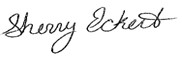 Sherry Eckert